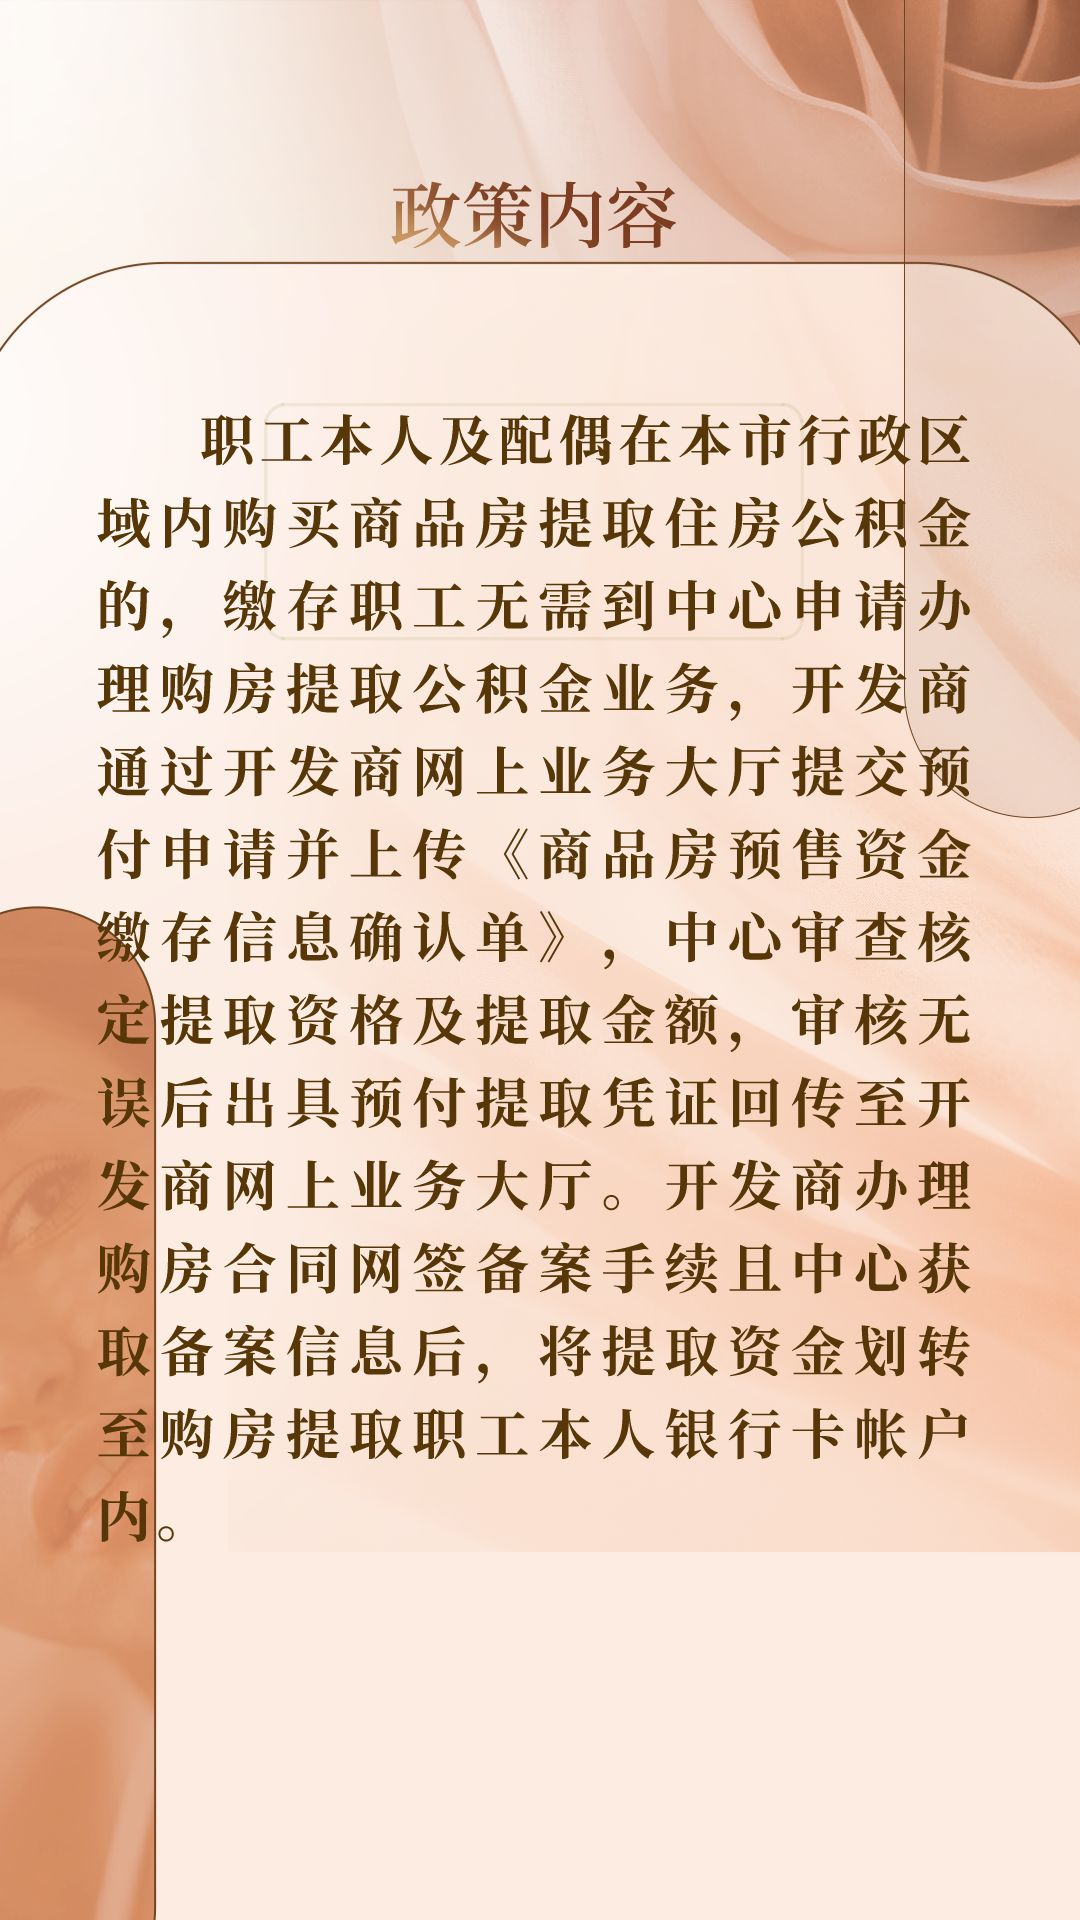 政策内容
职工本人及配偶在本市行政区
域内购买商品房提取住房公积金
的，缴存职工无需到中心申请办
理购房提取公积金业务，开发商
通过开发商网上业务大厅提交预
付申请并上传《商品房预售资金
缴存信息确认单》，中心审查核
定提取资格及提取金额，审核无
误后出具预付提取凭证回传至开
发商网上业务大厅。开发商办理
购房合同网签备案手续且中心获
取备案信息后，将提取资金划转
至购房提取职工本人银行卡帐户
内。